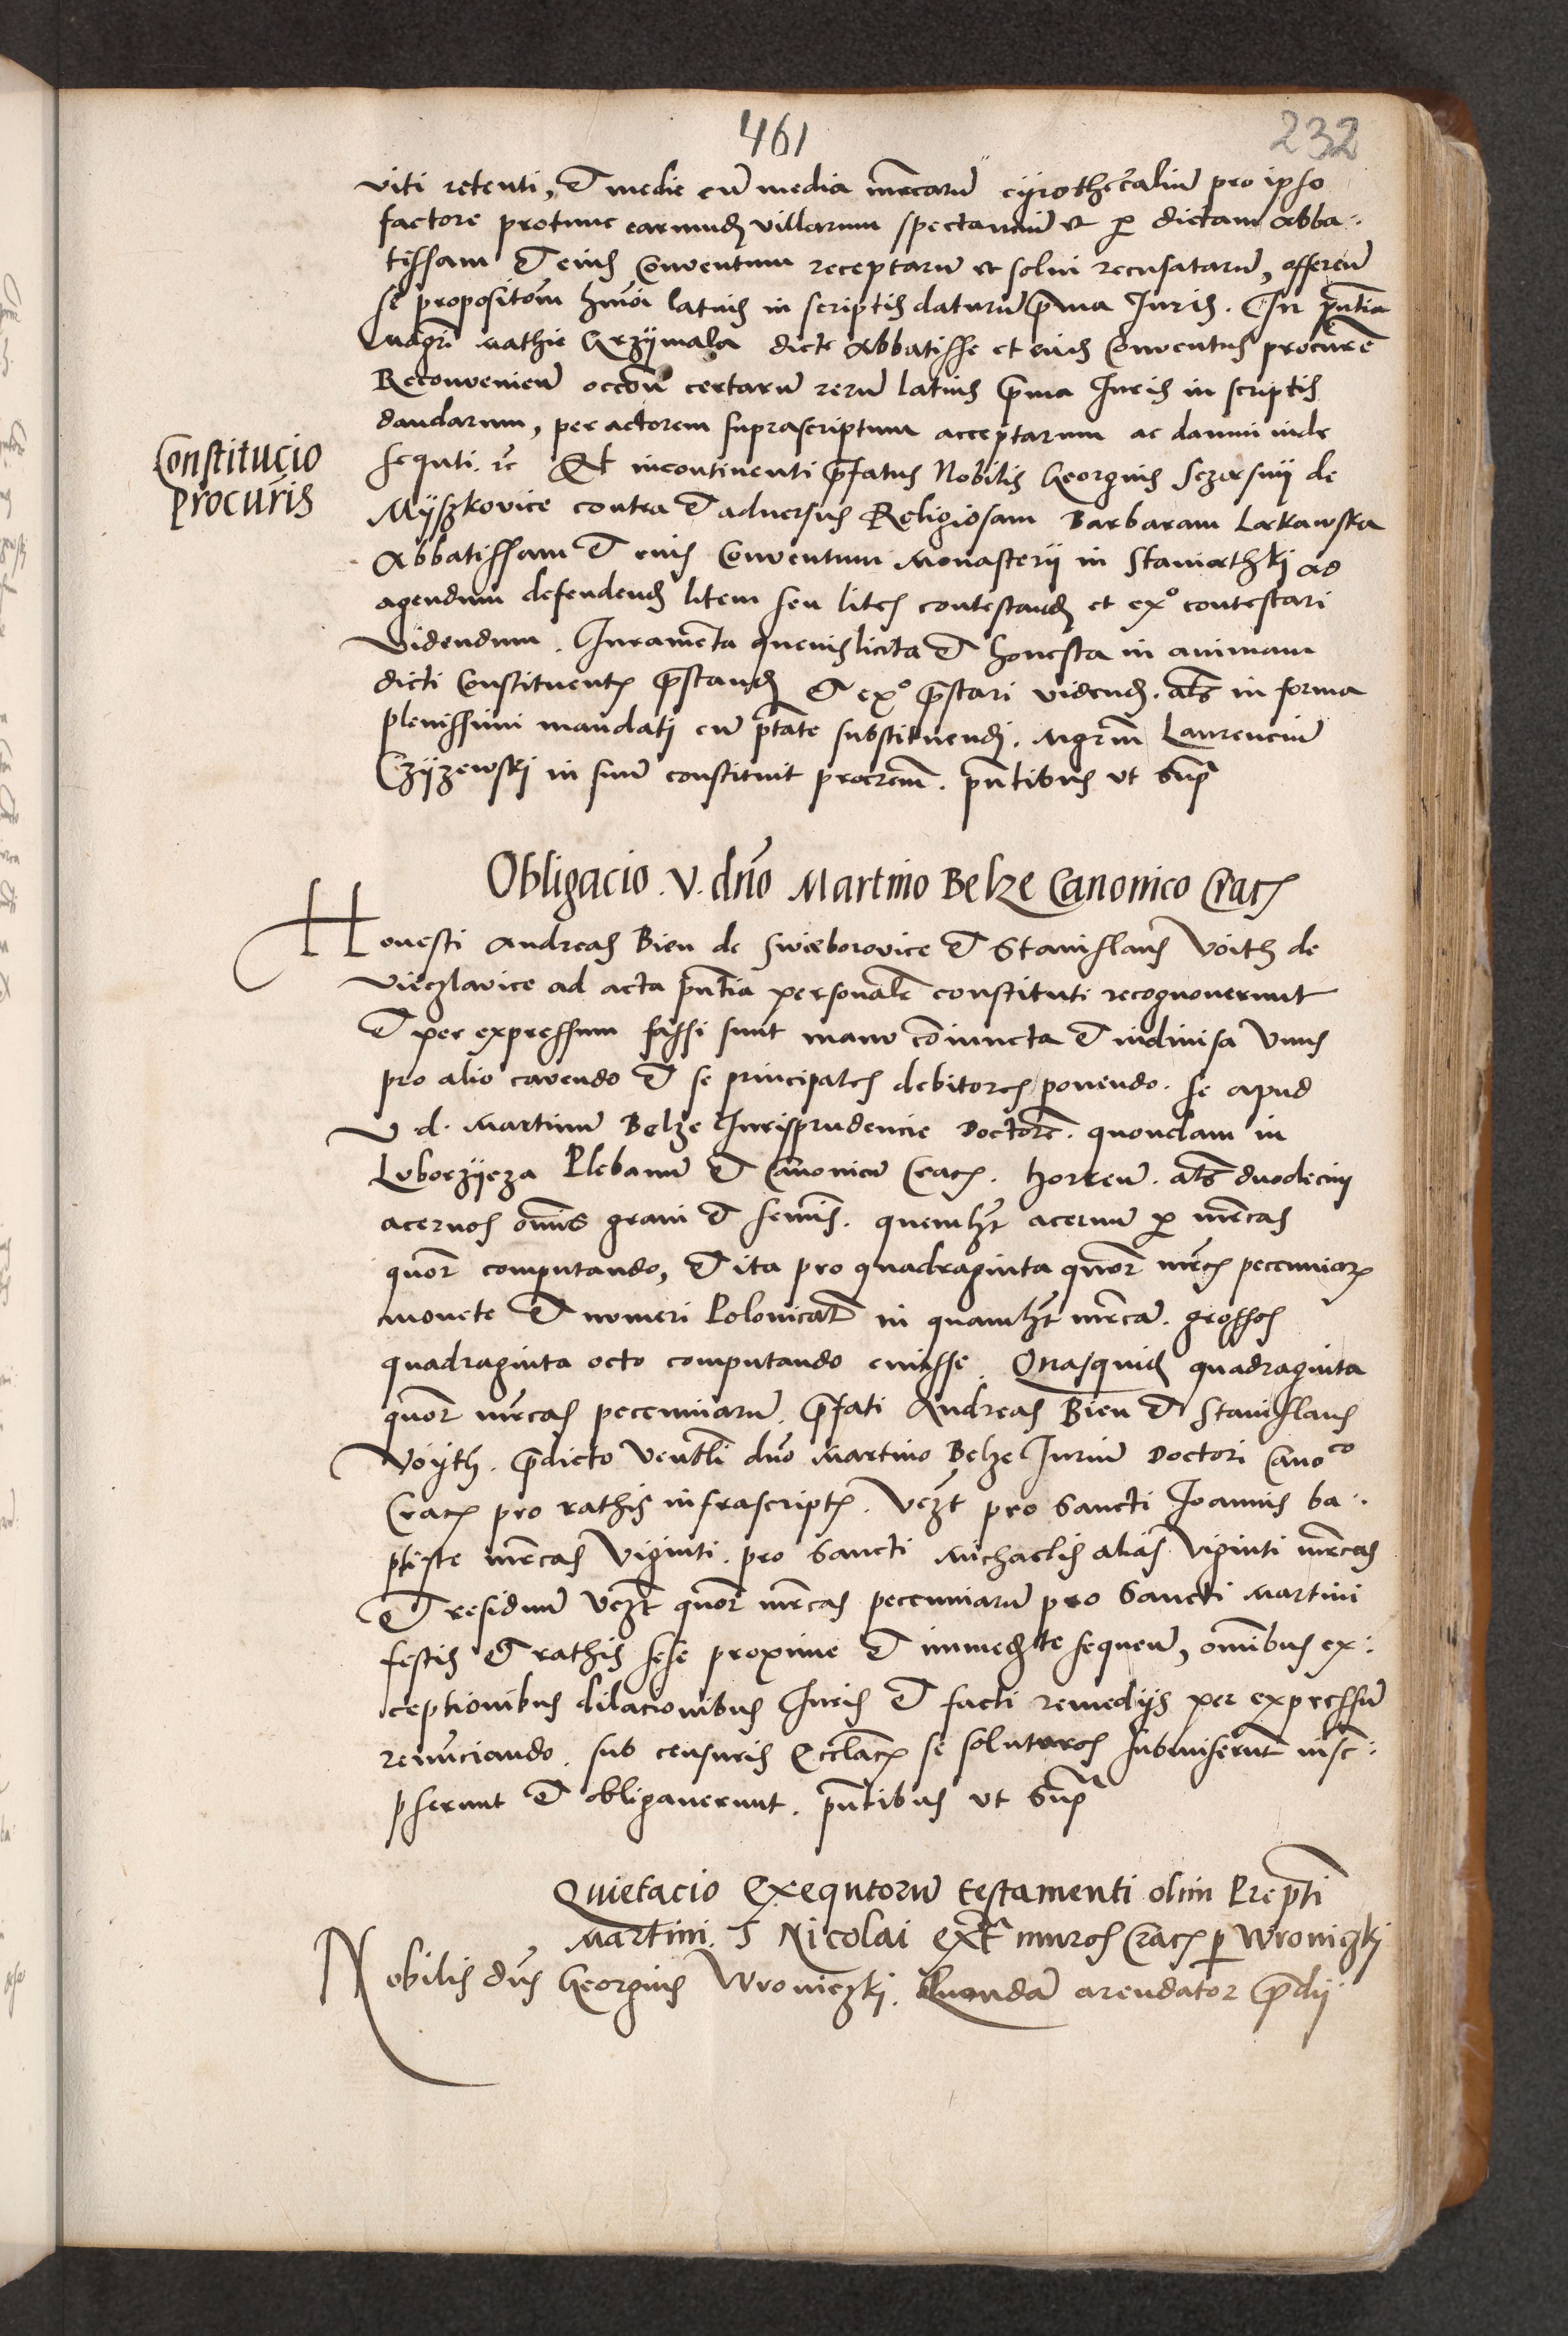 461
232
viti retenti, et medie cũ media mrcarũ cyrothecaliũ pro ipso
factore protunc earundẽ villarum spectantiũ et p dictam Abba-
tissam et eius Conventum receptarũ et solui recusatarũ, offereñ
se propositoẽm hmõi latius in scriptis daturũ prima Iuris. In pñtia
Magri Mathie Grzymala dicte Abbatisse et eius Conventus procure
Reconvenieñ occõe certarũ rerũ latius prima Iuris in scriptis
dandarum, per actorem suprascriptum acceptarum ac damni inde
Constitucio
procuris
sequti. rc̃ Et incontinenti prefatus Nobilis Georgius de
Myszkovice contra et adversus Religiosam Barbaram Larkawska
Abbatissam et eius Conventum Monasterij in Staniathki ad
agendum defendendũ litem seu lites contestandũ et exº contestari
videndum. Iuramenta quevis licita et honesta in animam
dicti Constituentis prestandũ et exº prestari vidend. als in forma
plenissimi mandati cũ ptate substituendi. Mgrm Laurenciũ
Czyzewski in suũ constituit procrem. pñtibus ut supra
Obligacio. V. dño Martino Belze Canonico Crac
Honesti Andreas Bien de Swieborovice et Stanislaus Voith de
Vieczlavice ad acta pñtia personalr constituti recognoverunt
et per expressum fassi sunt manu cõiuncta et indivisa Unus
pro alio cavendo et se principales debitores ponendo. se apud
V d. Martinũ Belze Iurisprudencie Doctorẽ. quondam in
Luborzycza Plebanũ et Canonicũ Crac. horreũ. als duodecim
acervos omnis grani et seminis. quemlibet acervũ p mrcas
quor computando, et ita pro quadraginta quor mrcis pecuniar
monete et numeri Polonical in quamlibet mrcã. grossos
quadraginta octo computando emisse. Quasquid quadraginta
quor mrcas pecuniarũ. prefati Andreas Bien et Stanislaus
Voyth. predicto Venbli dño Martino Belze Iuriũ Doctori Canoco
Crac pro rathis infrascriptis. Vczt pro Sancti Joannis ba-
ptiste mrcas viginti. pro Sancti Michaelis alias viginti mrcas
et residuũ vczt quor mrcas pecuniarũ pro Sancti Martini
festis et rathis sese proxime et immediate sequeñ, omnibus ex-
ceptionibus dilacionibus Iuris et facti remedijs per expressũ
renũciando. sub censuris Ecclac se soluturos submiserunt insc-
pserunt et obligaverunt. pñtibus ut supra
Quietacio Exequtorũ testamenti olim Prepti
Martini. S Nicolai extra muros Crac p Wroniczki
Nobilis dñs Georgius Wroniczki. Quondã arendator predij